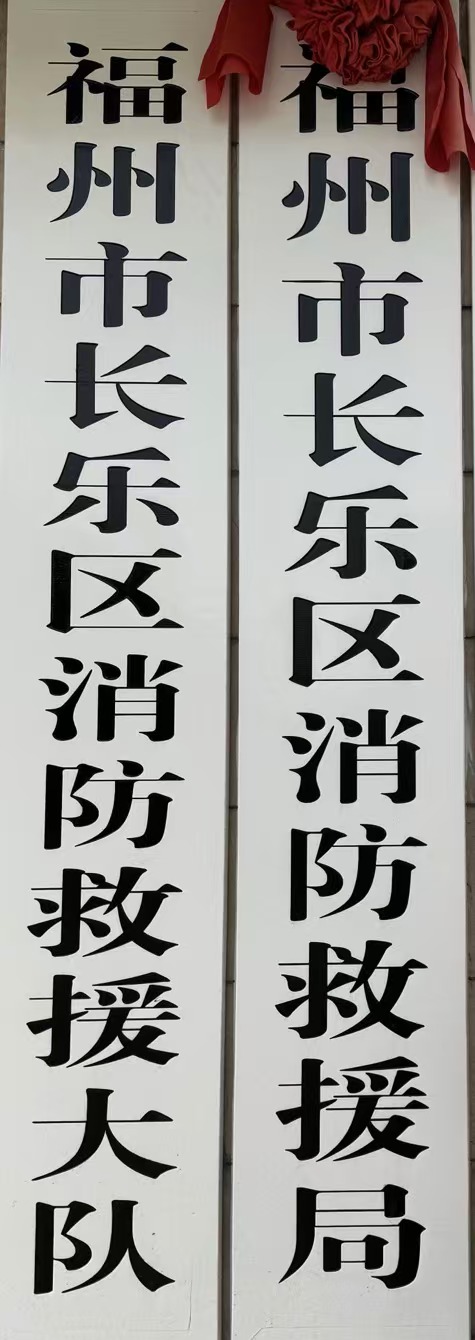 福州市长乐区消防救援大队
福州市长乐区消防救援局